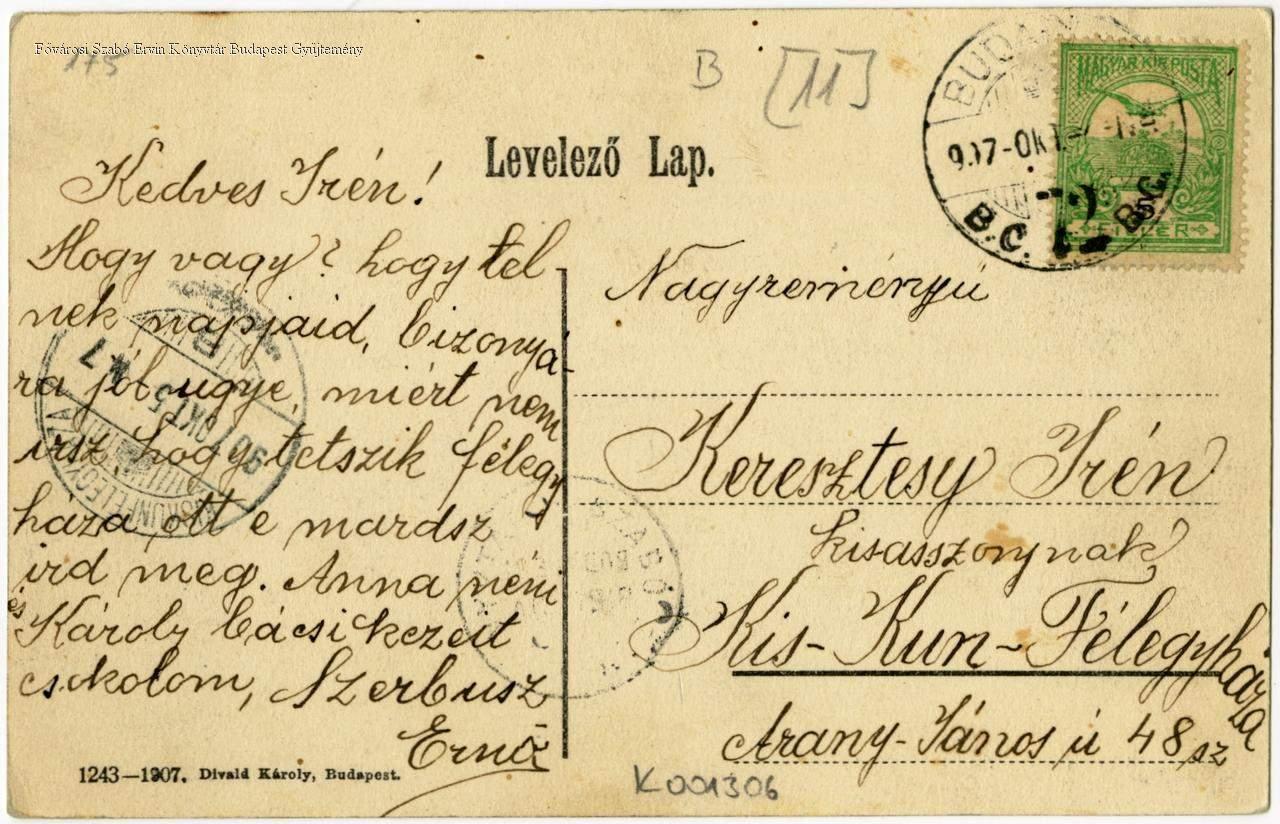 Fővárosi Szabó Ervin Könyvtár Budapest Gyűjtemény
175
B [11]
Levelező Lap.
BUDA
907-OKT
B.C.
B.C.
MAGYAR KIR. POSTA
FILLÉR
Kedves Irén!
Hogy vagy? hogy tel-
nek napjaid, bizonyá-
ra jól ugye, miért nem
irsz, hogy tetszik félegy
haza ott e mardsz
ird meg. Anna néni
és Károly bácsi kezeit
csokolom, Szerbusz
Ernő
907 OKT 5
Nagyreményű
Keresztesy Irén
kisasszonynak
Kis-Kun-Félegyháza
Arany-János ú 48 sz
1243—1907. Divald Károly, Budapest.
K001306